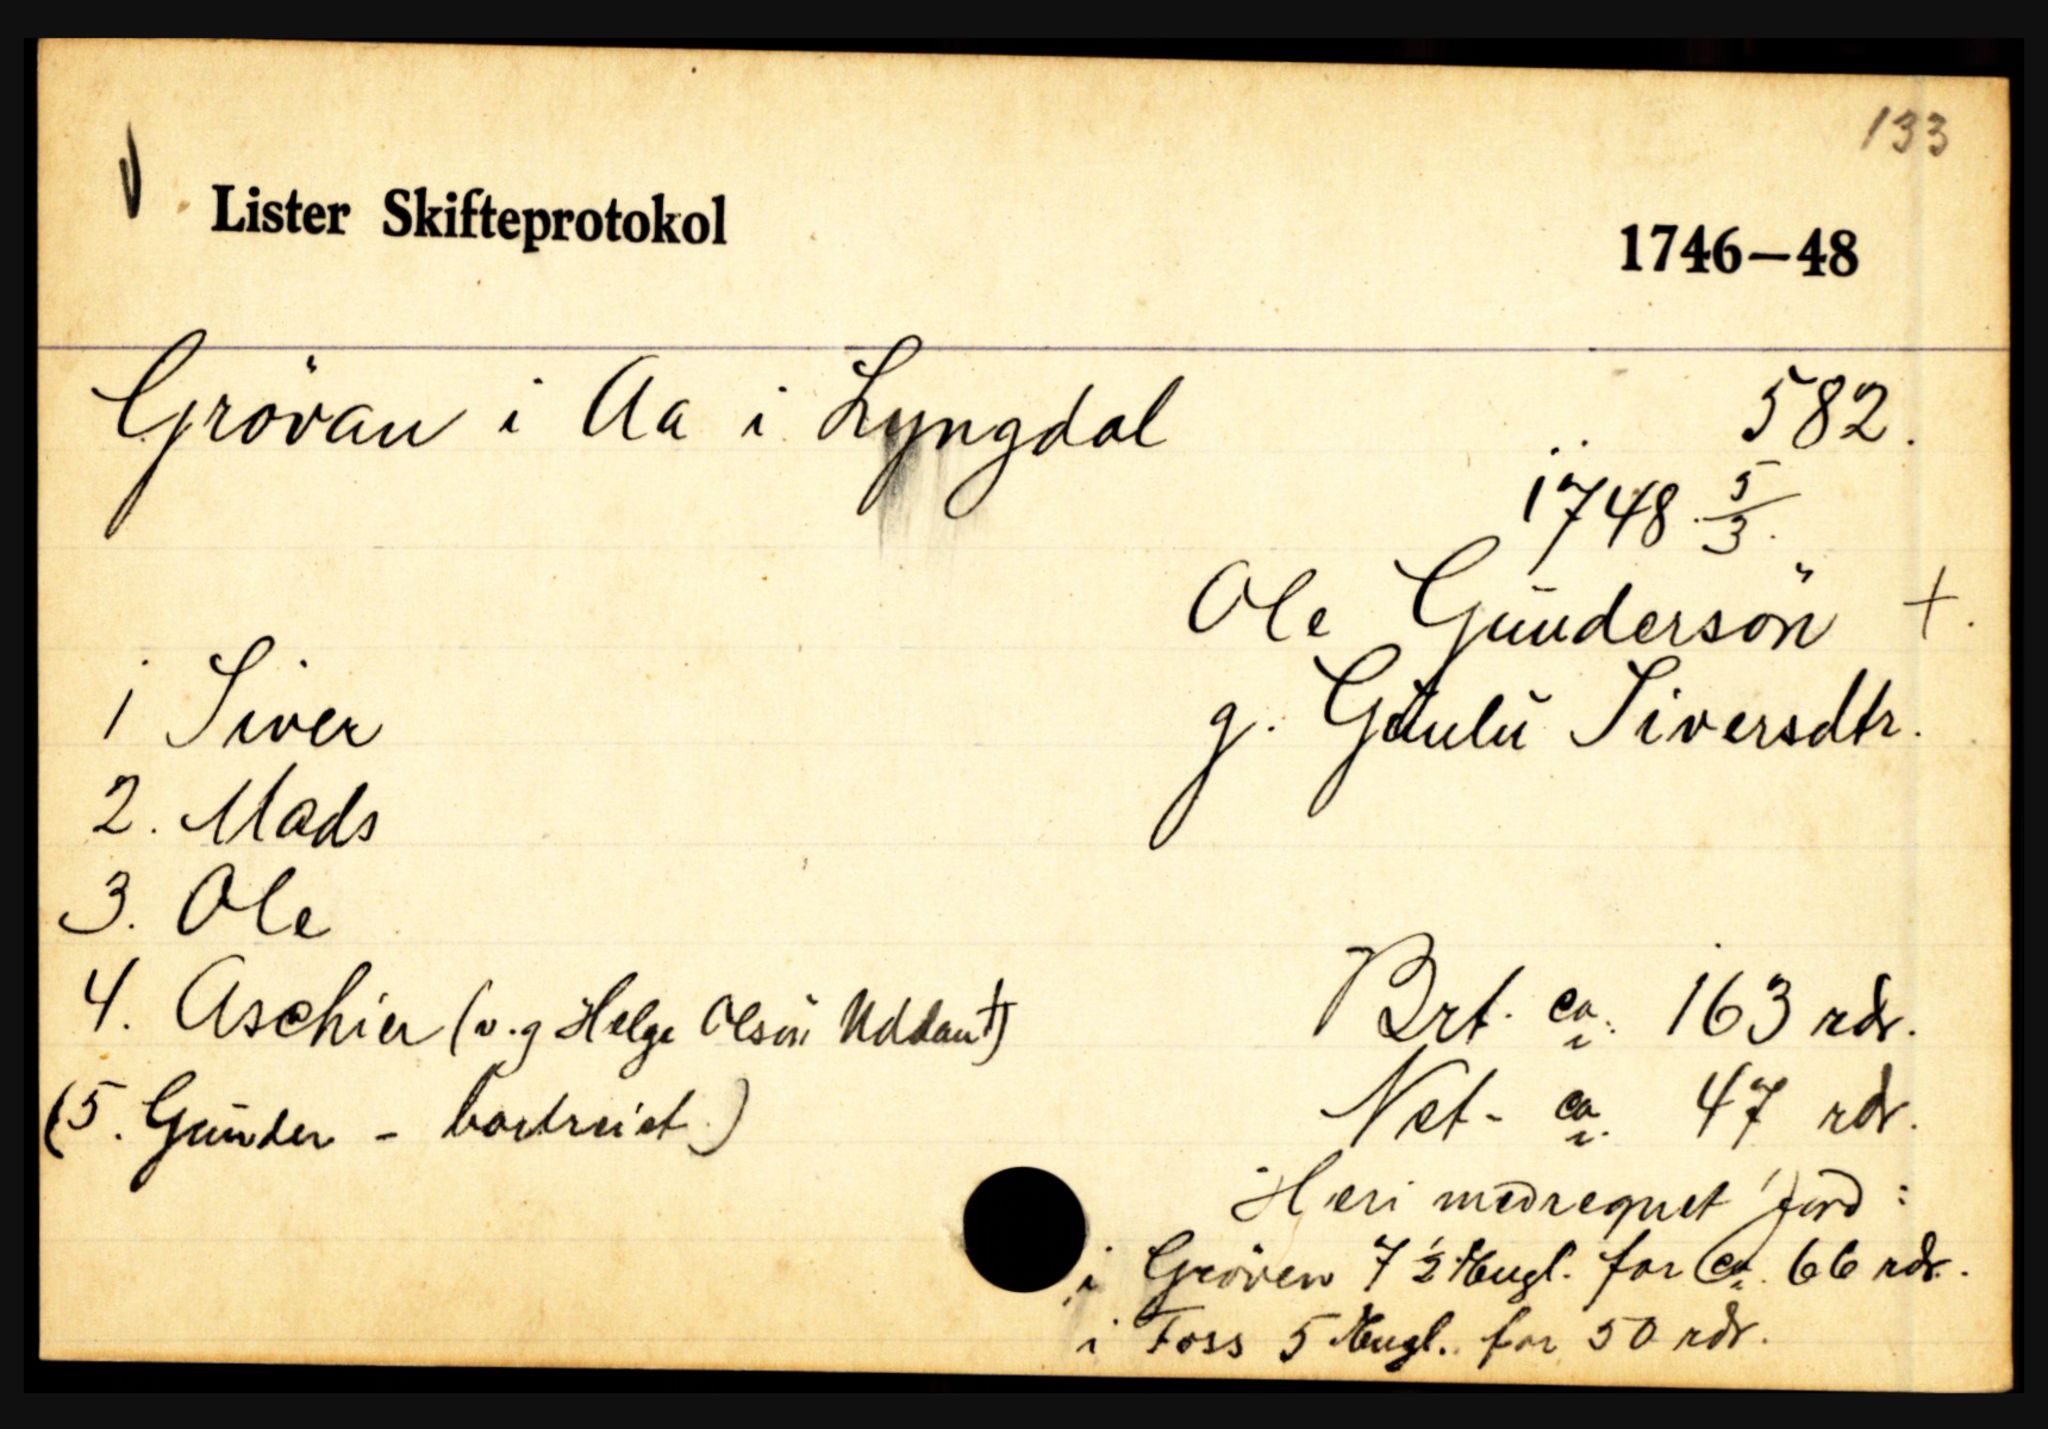 133
Lister Skifteprotokol 1746-48
Grövan i Aa i Lyngdal 582.
1748 5/3.
Ole Gundersön +.
g. Gunlu Siversdtr.
1 Siver
2. Mads
3. Ole
4. Aschier (v. g Helge Olsön Uddan†)
(5. Gunder - bortreist.)
Brt. ca. 163 rdr.
Net- ca. 47 rdr.
Heri medregnet jord:
i Gröven 7 1/2 Engl. for ca. 66 rdr.
i Foss 5 Engl. for 50 rdr.